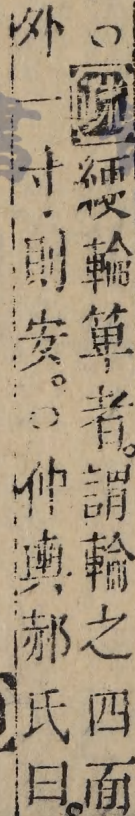 ○疏綆輪箄者。謂輪之四面
外一寸則安。○仲輿郝氏曰。